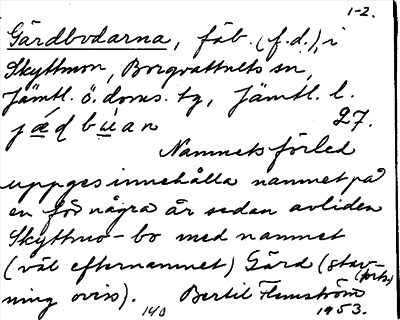 1-2.
Gärdbodarna, fäb. (f.d.), i
Skyttmon, Borgvattnets sn,
Jämtl. ö. doms. tg, Jämtl. l.
jæ̀ḍbúan 27.
Namnets förled
uppges innehålla namnet på
en för några år sedan avliden
Skyttmo-bo med namnet
(väl efternamnet) Gärd (stav-
ning oviss). (forts.)
140 Bertil Flemström
1953.